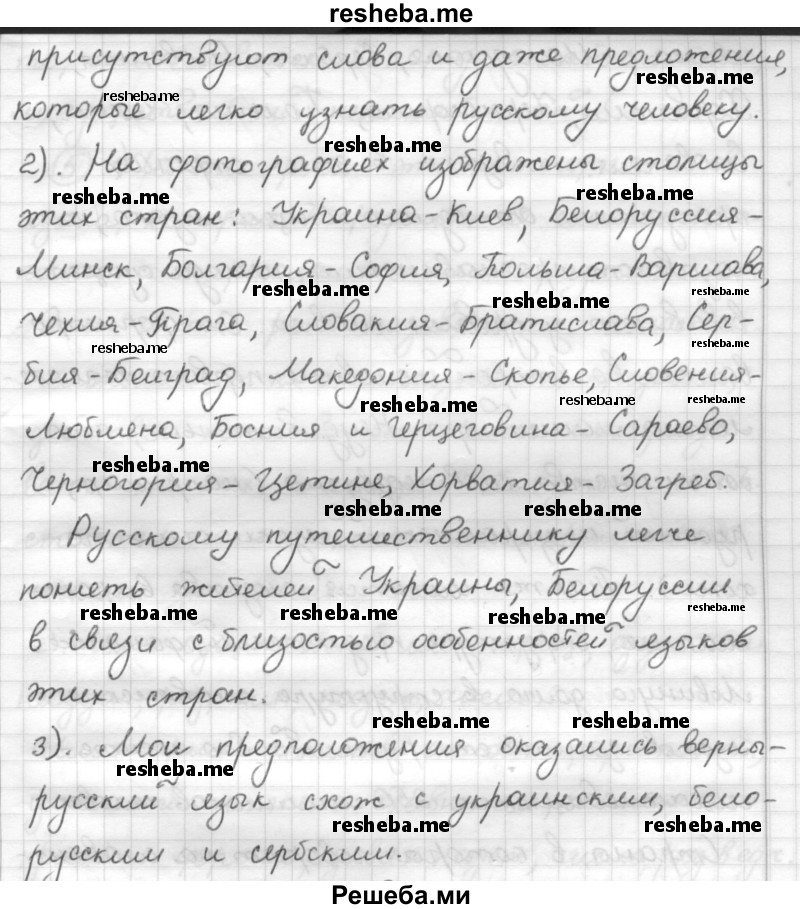 resheba.me
присутствуют слова и даже предложения,
resheba.me
resheba.me
которые легко узнать русскому человеку.
resheba.me
2). На фотографиях изображены столицы
resheba.me
resheba.me
этих стран: Украина-Киев, Белоруссия-
Минск, Болгария-София, Польша-Варшава,
resheba.me
resheba.me
resheba.me
Чехия-Прага, Словакия-Братислава, Сер-
resheba.me
resheba.me
бия-Белград, Македония-Скопье, Словения-
resheba.me
resheba.me
resheba.me
Любляна, Босния и Герцеговина-Сараево,
resheba.me
Черногория-Цетине, Хорватия-Загреб.
resheba.me
resheba.me
Русскому путешественнику легче
понять жителей Украины, Белоруссии
resheba.me
resheba.me
resheba.me
resheba.me
в связи с близостью особенностей языков
этих стран.
resheba.me
resheba.me
3). Мои предположения оказались верны-
resheba.me
русский язык схож с украинским, бело-
resheba.me
resheba.me
русским и сербским.
Решеба.ми